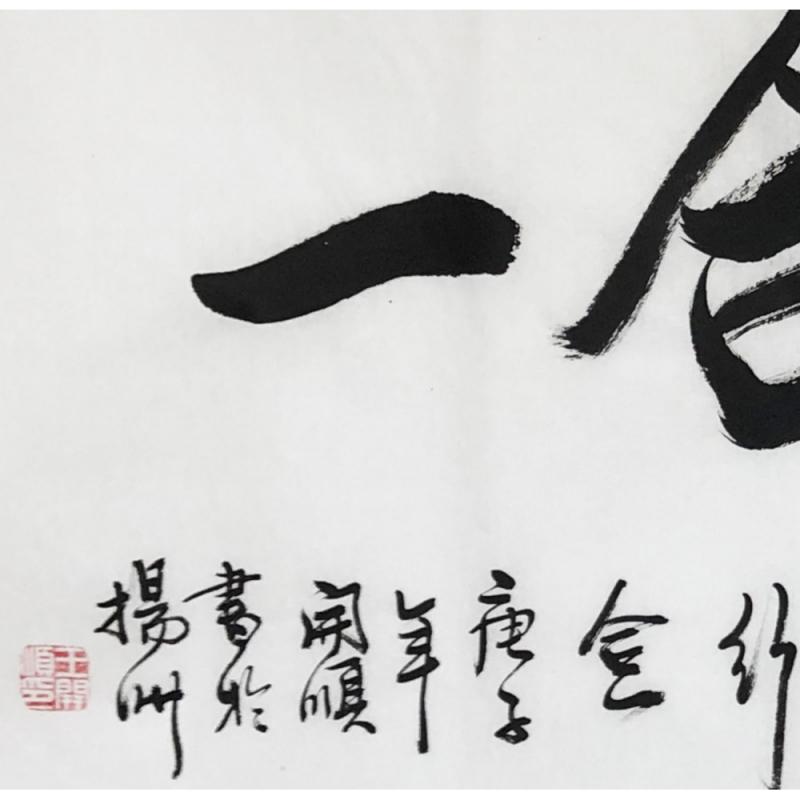 合一
行
合一
庚子
年
開順
書於
揚州
王開順印